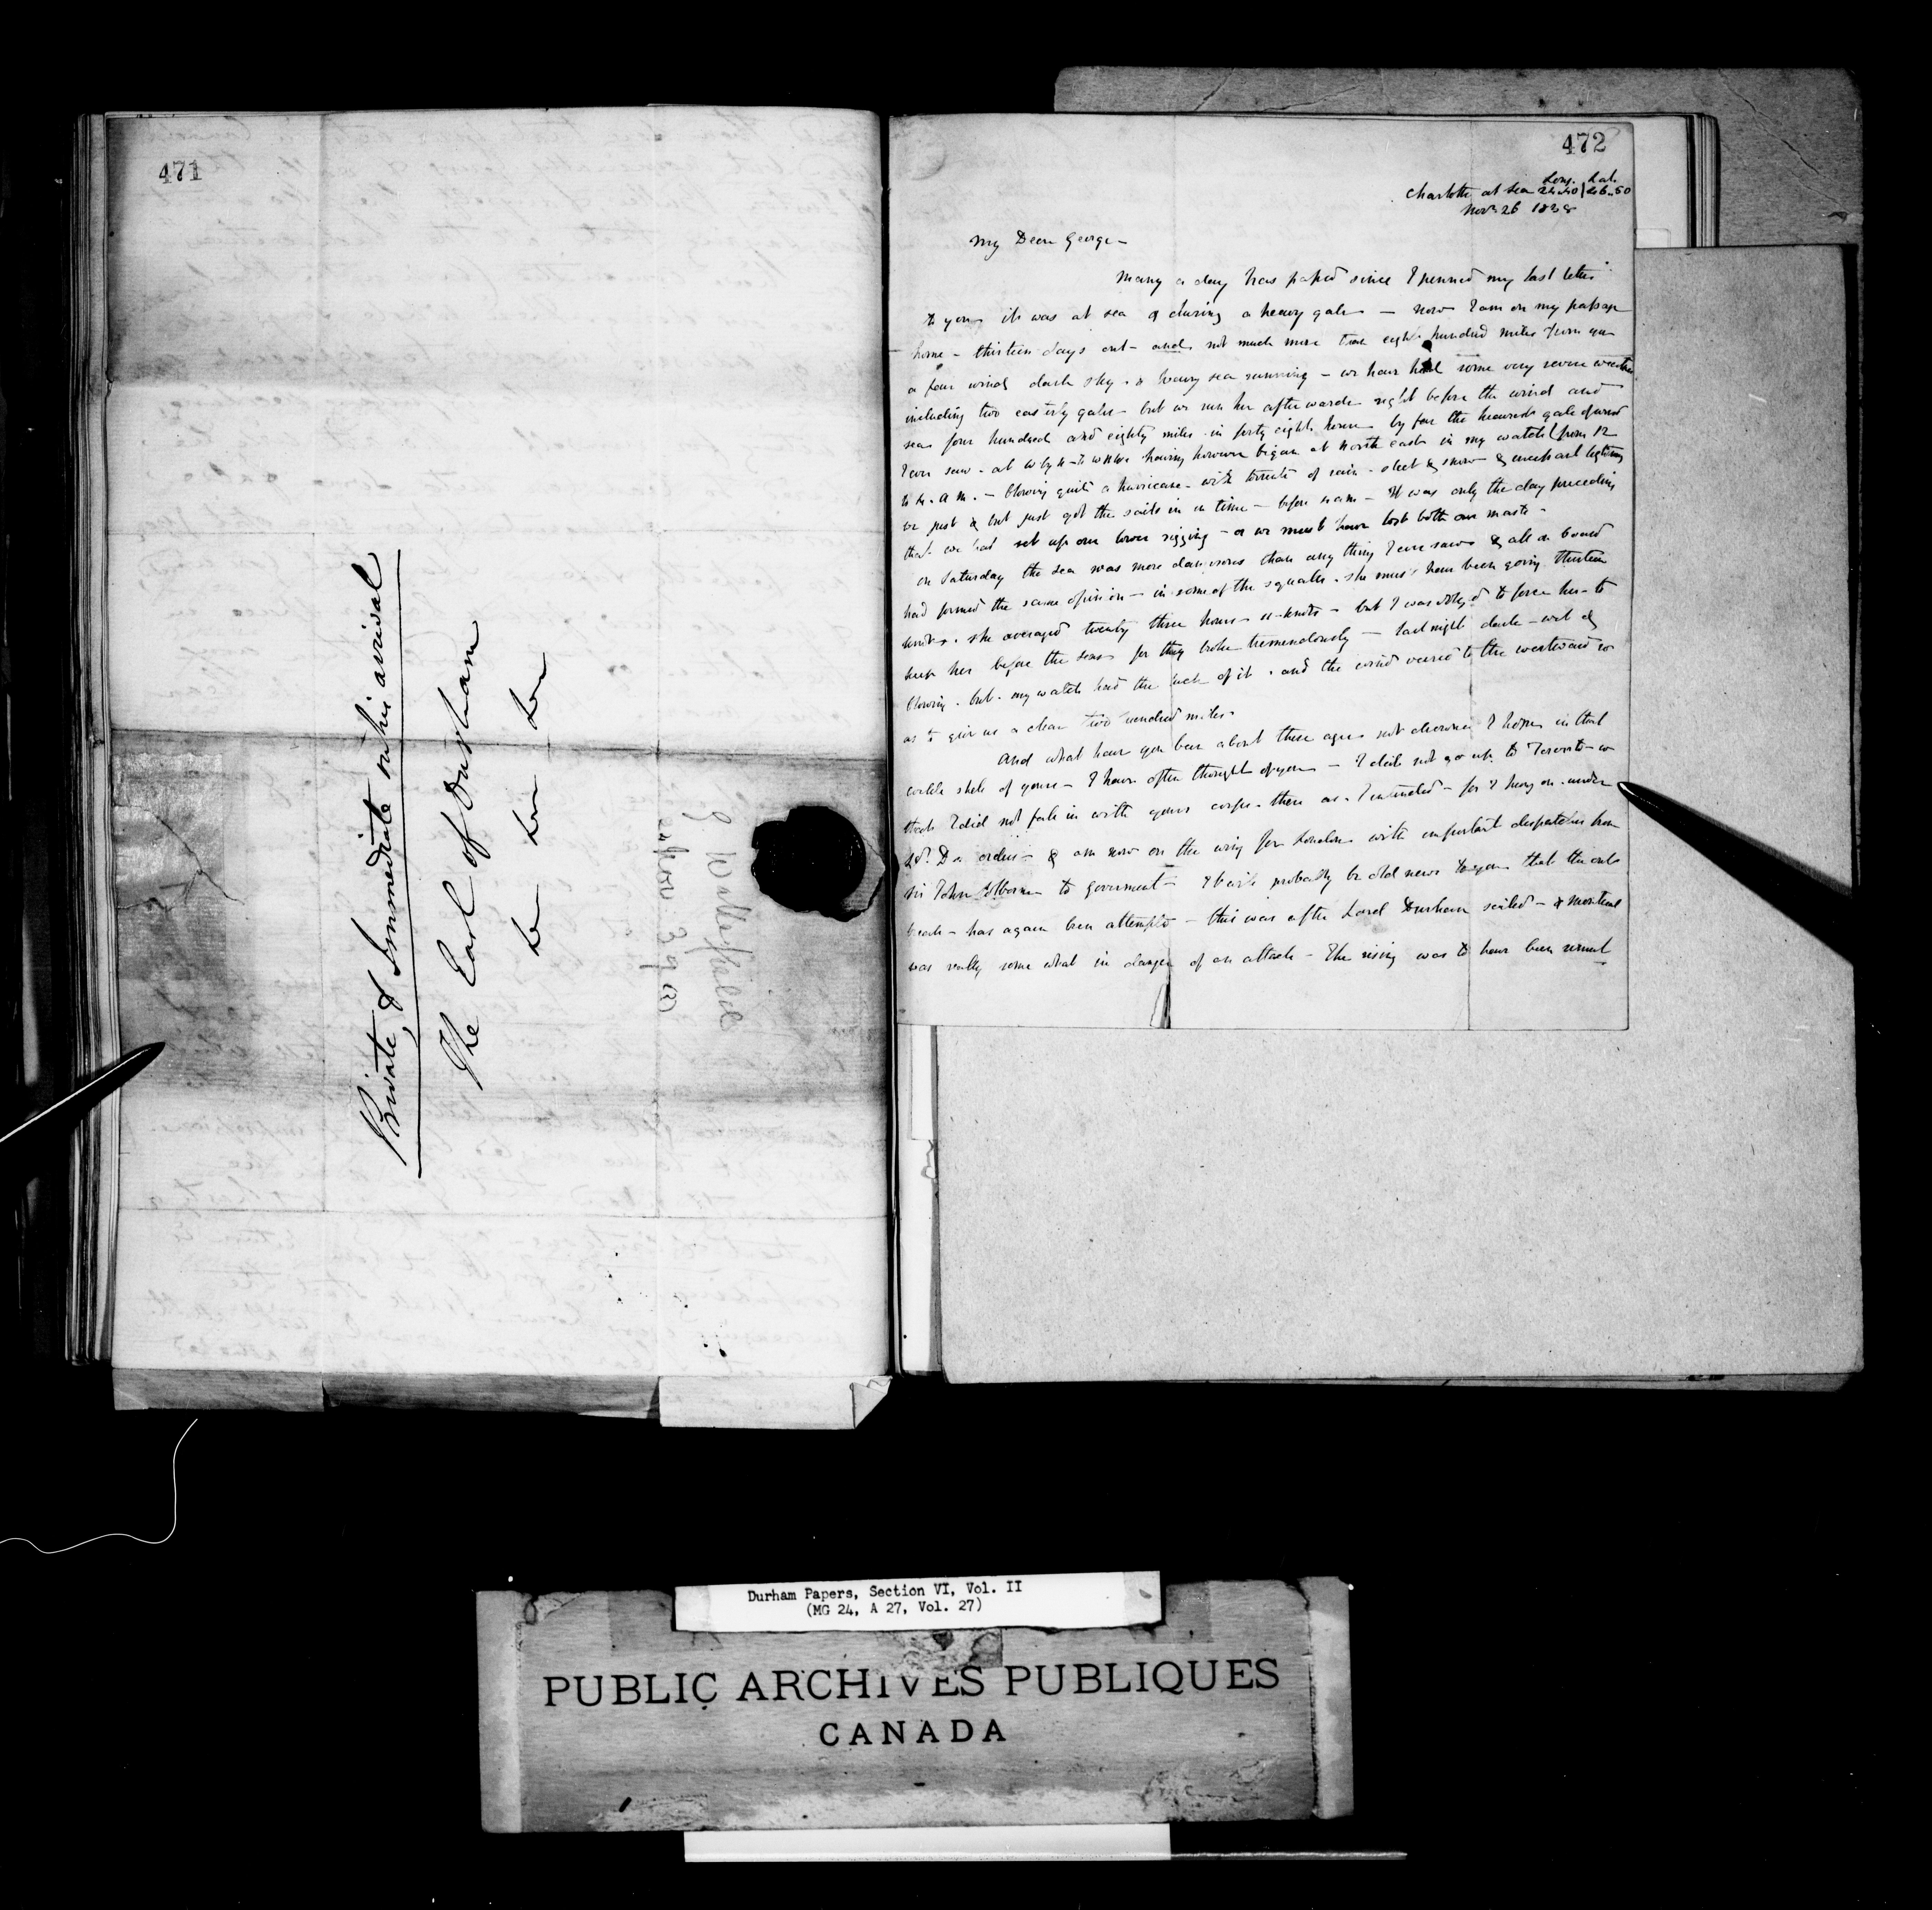 471
Private, & Immediate on his arrival
The Earl of Durham
472
Long. Lat.
Charlotte at sea 24.40 | 46.50
Novr 26 1838
My Dear George -
Many a day has passed since I penned my last letter
to you it was at sea & during a heavy gale - now I am on my passage
home - thirteen days out - and not much more than eight hundred miles from you
a fair wind dark sky - & heavy sea running - we have had some very severe weather
including two easterly gales - but we run her afterwards right before the wind and
sea four hundred and eighty miles in forty eight hours by far the heaviest gale of wind
I ever saw - at having however began at North east in my watch (from 12
to 4. A.M. - blowing quite a hurricane - with torrents of rain - sleet & snow & lightning
we just & but just got the sails in in time - It was only the day preceding
that we had set up our lower rigging - or we must have lost both our masts -
on Saturday the sea was more dangerous than any thing I ever saw & all on board
had formed the same opinion - in some of the squalls - she must have been going thirteen
knots. she averaged twenty three hours - 11 - knots - but I was obliged to force her - to
keep her before the seas for they broke tremendously - last night dark - wet &
blowing - but - my watch had the luck of it - and the wind veered to the westward so
as to give us a clear two hundred miles -
And what have you been about these ages not drowned I hope in that
cockle shell of yours - I have often thought of you - I did not go up to Toronto - so
that I did not fall in with your corps - there as - I intended - for I hung on under
Ld. D's orders - & am now on the wing for London with important despatches from
Sir John Colborne to government - It will probably be old news to you that the out
break - has again been attempted - this was after Lord Durham sailed - & Montreal
was really some what in danger of an attack - The rising was to have been
Durham Papers, Section VI, Vol. II
(MG 24, A 27, Vol. 27)
PUBLIC ARCHIVES PUBLIQUES
CANADA